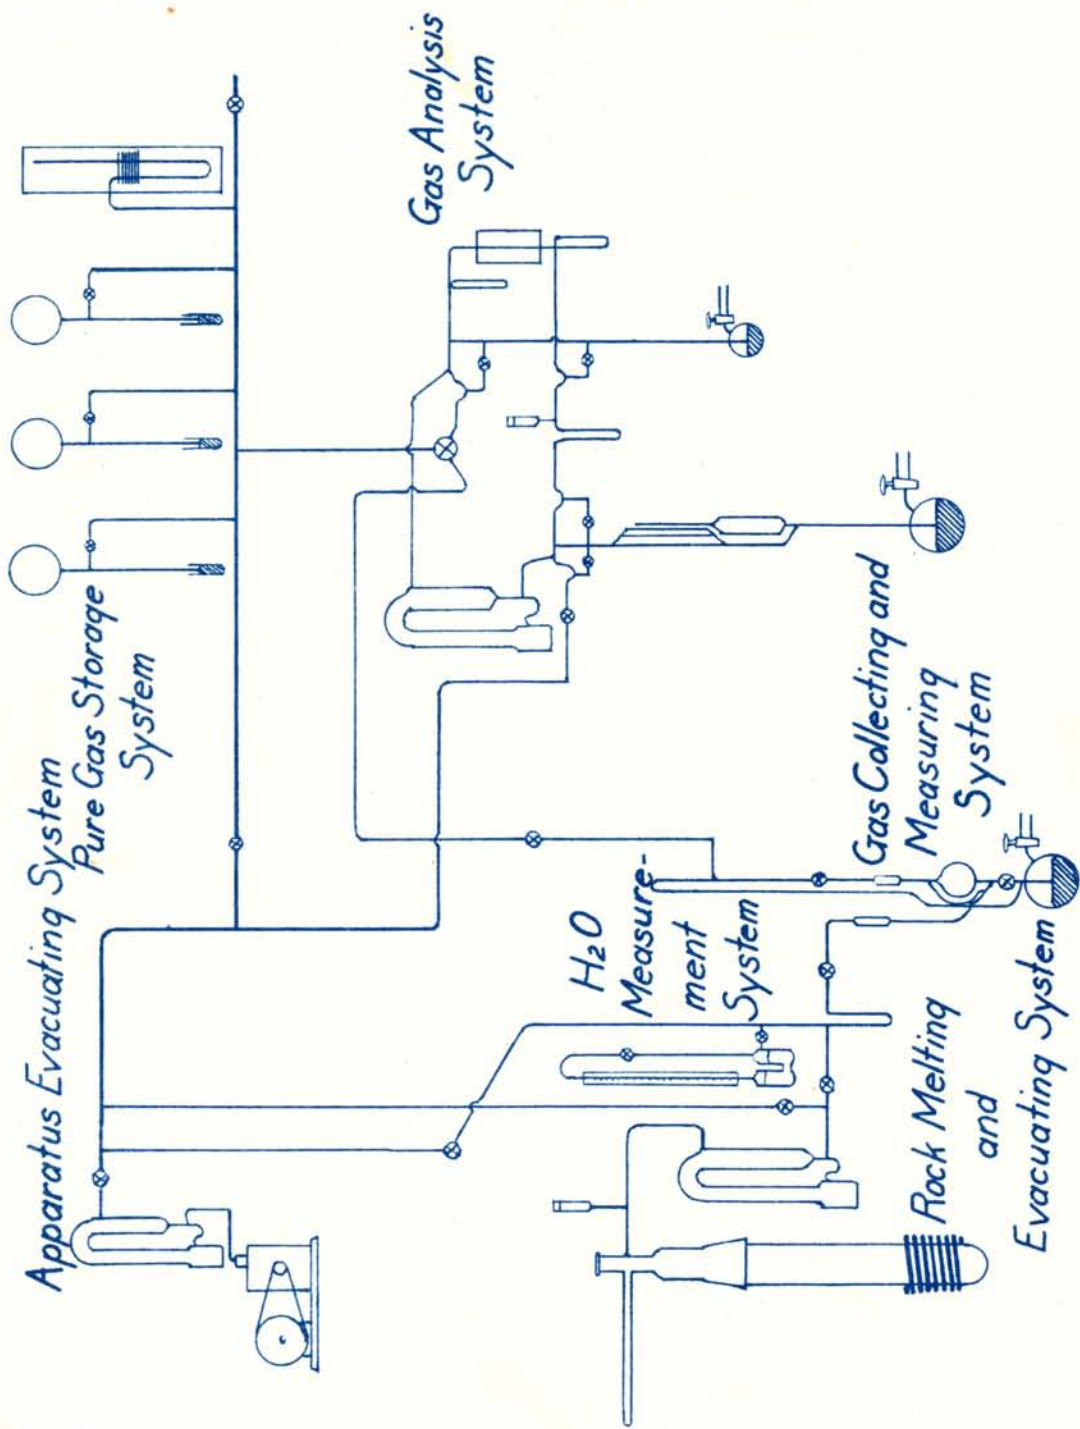 Apparatus Evacuating System
Pure Gas Storage
System
Gas Analysis
System
H2O
Measure-
ment
System
Gas Collecting and
Measuring
System
Rock Melting
and
Evacuating System